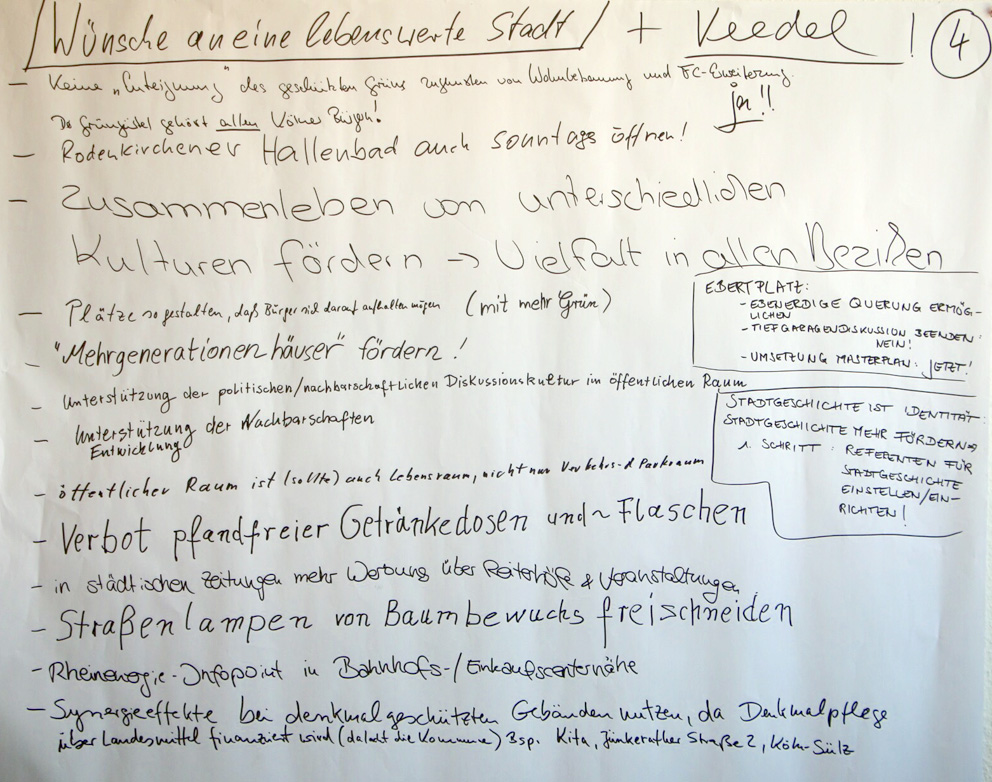 Wünsche an eine lebenswerte Stadt + Veedel ! 4
– Keine "Enteignung" des geschützten Grüns zugunsten von Wohnbebauung und FC-Erweiterung.
ja!!
Der Grüngürtel gehört allen Kölner Bürgern!
– Rodenkirchener Hallenbad auch sonntags öffnen!
– Zusammenleben von unterschiedlichen
Kulturen fördern → Vielfalt in allen Bezirken
– Plätze so gestalten, daß Bürger sich darauf aufhalten mögen (mit mehr Grün)
– "Mehrgenerationenhäuser" fördern!
– Unterstützung der politischen/nachbarschaftlichen Diskussionskultur im öffentlichen Raum
– Unterstützung der Nachbarschaften
Entwicklung
– öffentlicher Raum ist (sollte) auch Lebensraum, nicht nur Verkehrs- & Parkraum
– Verbot pfandfreier Getränkedosen und ~ Flaschen
– in städtischen Zeitungen mehr Werbung über Reiterhöfe & Veranstaltungen
– Straßenlampen von Baumbewuchs freischneiden
– Rheinenergie-Infopoint in Bahnhofs-/Einkaufscenternähe
– Synergieeffekte bei denkmalgeschützten Gebäuden nutzen, da Denkmalpflege
über Landesmittel finanziert wird (dalost die Kommune) Bsp. Kita, Jünkerather Straße 2, Köln-Sülz
EBERTPLATZ:
- EBENERDIGE QUERUNG ERMÖG-
LICHEN
- TIEFGARAGENDISKUSSION BEENDEN:
NEIN!
- UMSETZUNG MASTERPLAN: JETZT!
STADTGESCHICHTE IST IDENTITÄT:
STADTGESCHICHTE MEHR FÖRDERN ⇒
1. SCHRITT: REFERENTEN FÜR
STADTGESCHICHTE
EINSTELLEN/EIN-
RICHTEN!